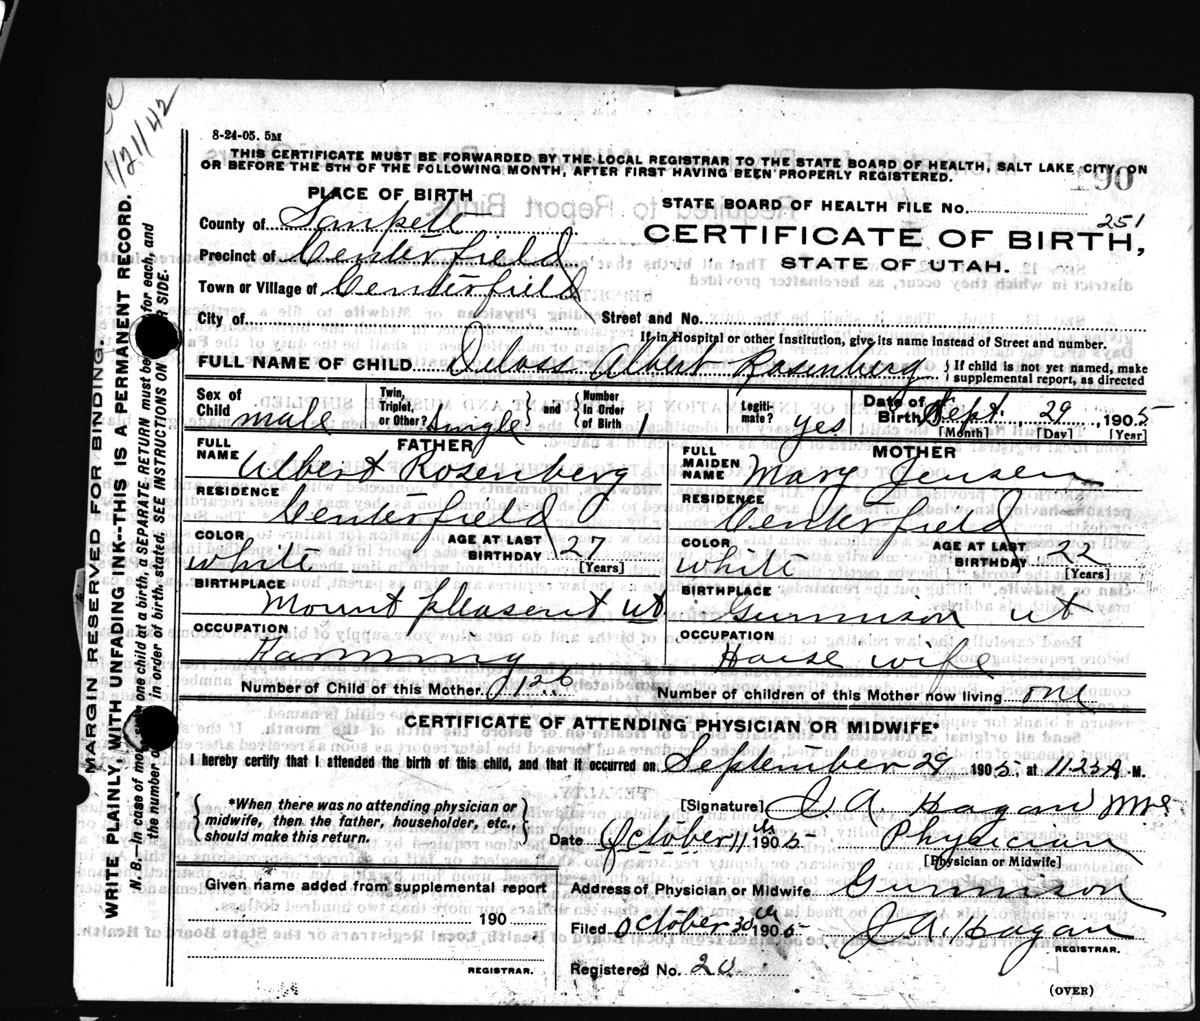 1/21/42
8-24-05. 5M
THIS CERTIFICATE MUST BE FORWARDED BY THE LOCAL REGISTRAR TO THE STATE BOARD OF HEALTH, SALT LAKE CITY, ON
OR BEFORE THE 5TH OF THE FOLLOWING MONTH, AFTER FIRST HAVING BEEN PROPERLY REGISTERED.
190
PLACE OF BIRTH
STATE BOARD OF HEALTH FILE No. 251
County of Sanpete
CERTIFICATE OF BIRTH,
Precinct of Centerfield
STATE OF UTAH.
Town or Village of Centerfield
City of Street and No.
If in Hospital or other Institution, give its name instead of Street and number.
FULL NAME OF CHILD Deloss Albert Rosenberg } If child is not yet named, make
supplemental report, as directed
Sex of Child male Twin, Triplet, or Other? Single } and { Number In Order of Birth 1 Legiti- mate? yes Date of Birth Sept. 29, 1905
[Month] [Day] [Year]
FATHER MOTHER
FULL NAME Albert Rosenberg FULL MAIDEN NAME Mary Jensen
RESIDENCE Centerfield RESIDENCE Centerfield
COLOR white AGE AT LAST BIRTHDAY 27 [Years] COLOR white AGE AT LAST BIRTHDAY 22 [Years]
BIRTHPLACE Mount pleasent ut BIRTHPLACE Gunnison ut
OCCUPATION Farming OCCUPATION House wife
Number of Child of this Mother Number of children of this Mother now living one
CERTIFICATE OF ATTENDING PHYSICIAN OR MIDWIFE*
I hereby certify that I attended the birth of this child, and that it occurred on September 29 1905, at 1123 A. M.
{ *When there was no attending physician or
midwife, then the father, householder, etc.,
should make this return. }
[Signature] J. A. Hagan
Date October 11th 1905 Physician
[Physician or Midwife]
Given name added from supplemental report
Address of Physician or Midwife Gunnison
190
Filed October 30th 1905 J. A. Hagan
REGISTRAR.
REGISTRAR.
Registered No. 20
(OVER)
MARGIN RESERVED FOR BINDING.
WRITE PLAINLY, WITH UNFADING INK--THIS IS A PERMANENT RECORD.
N. B.—In case of more one child at a birth, a SEPARATE RETURN must be for each, and
the number in order of birth stated. SEE INSTRUCTIONS ON SIDE.